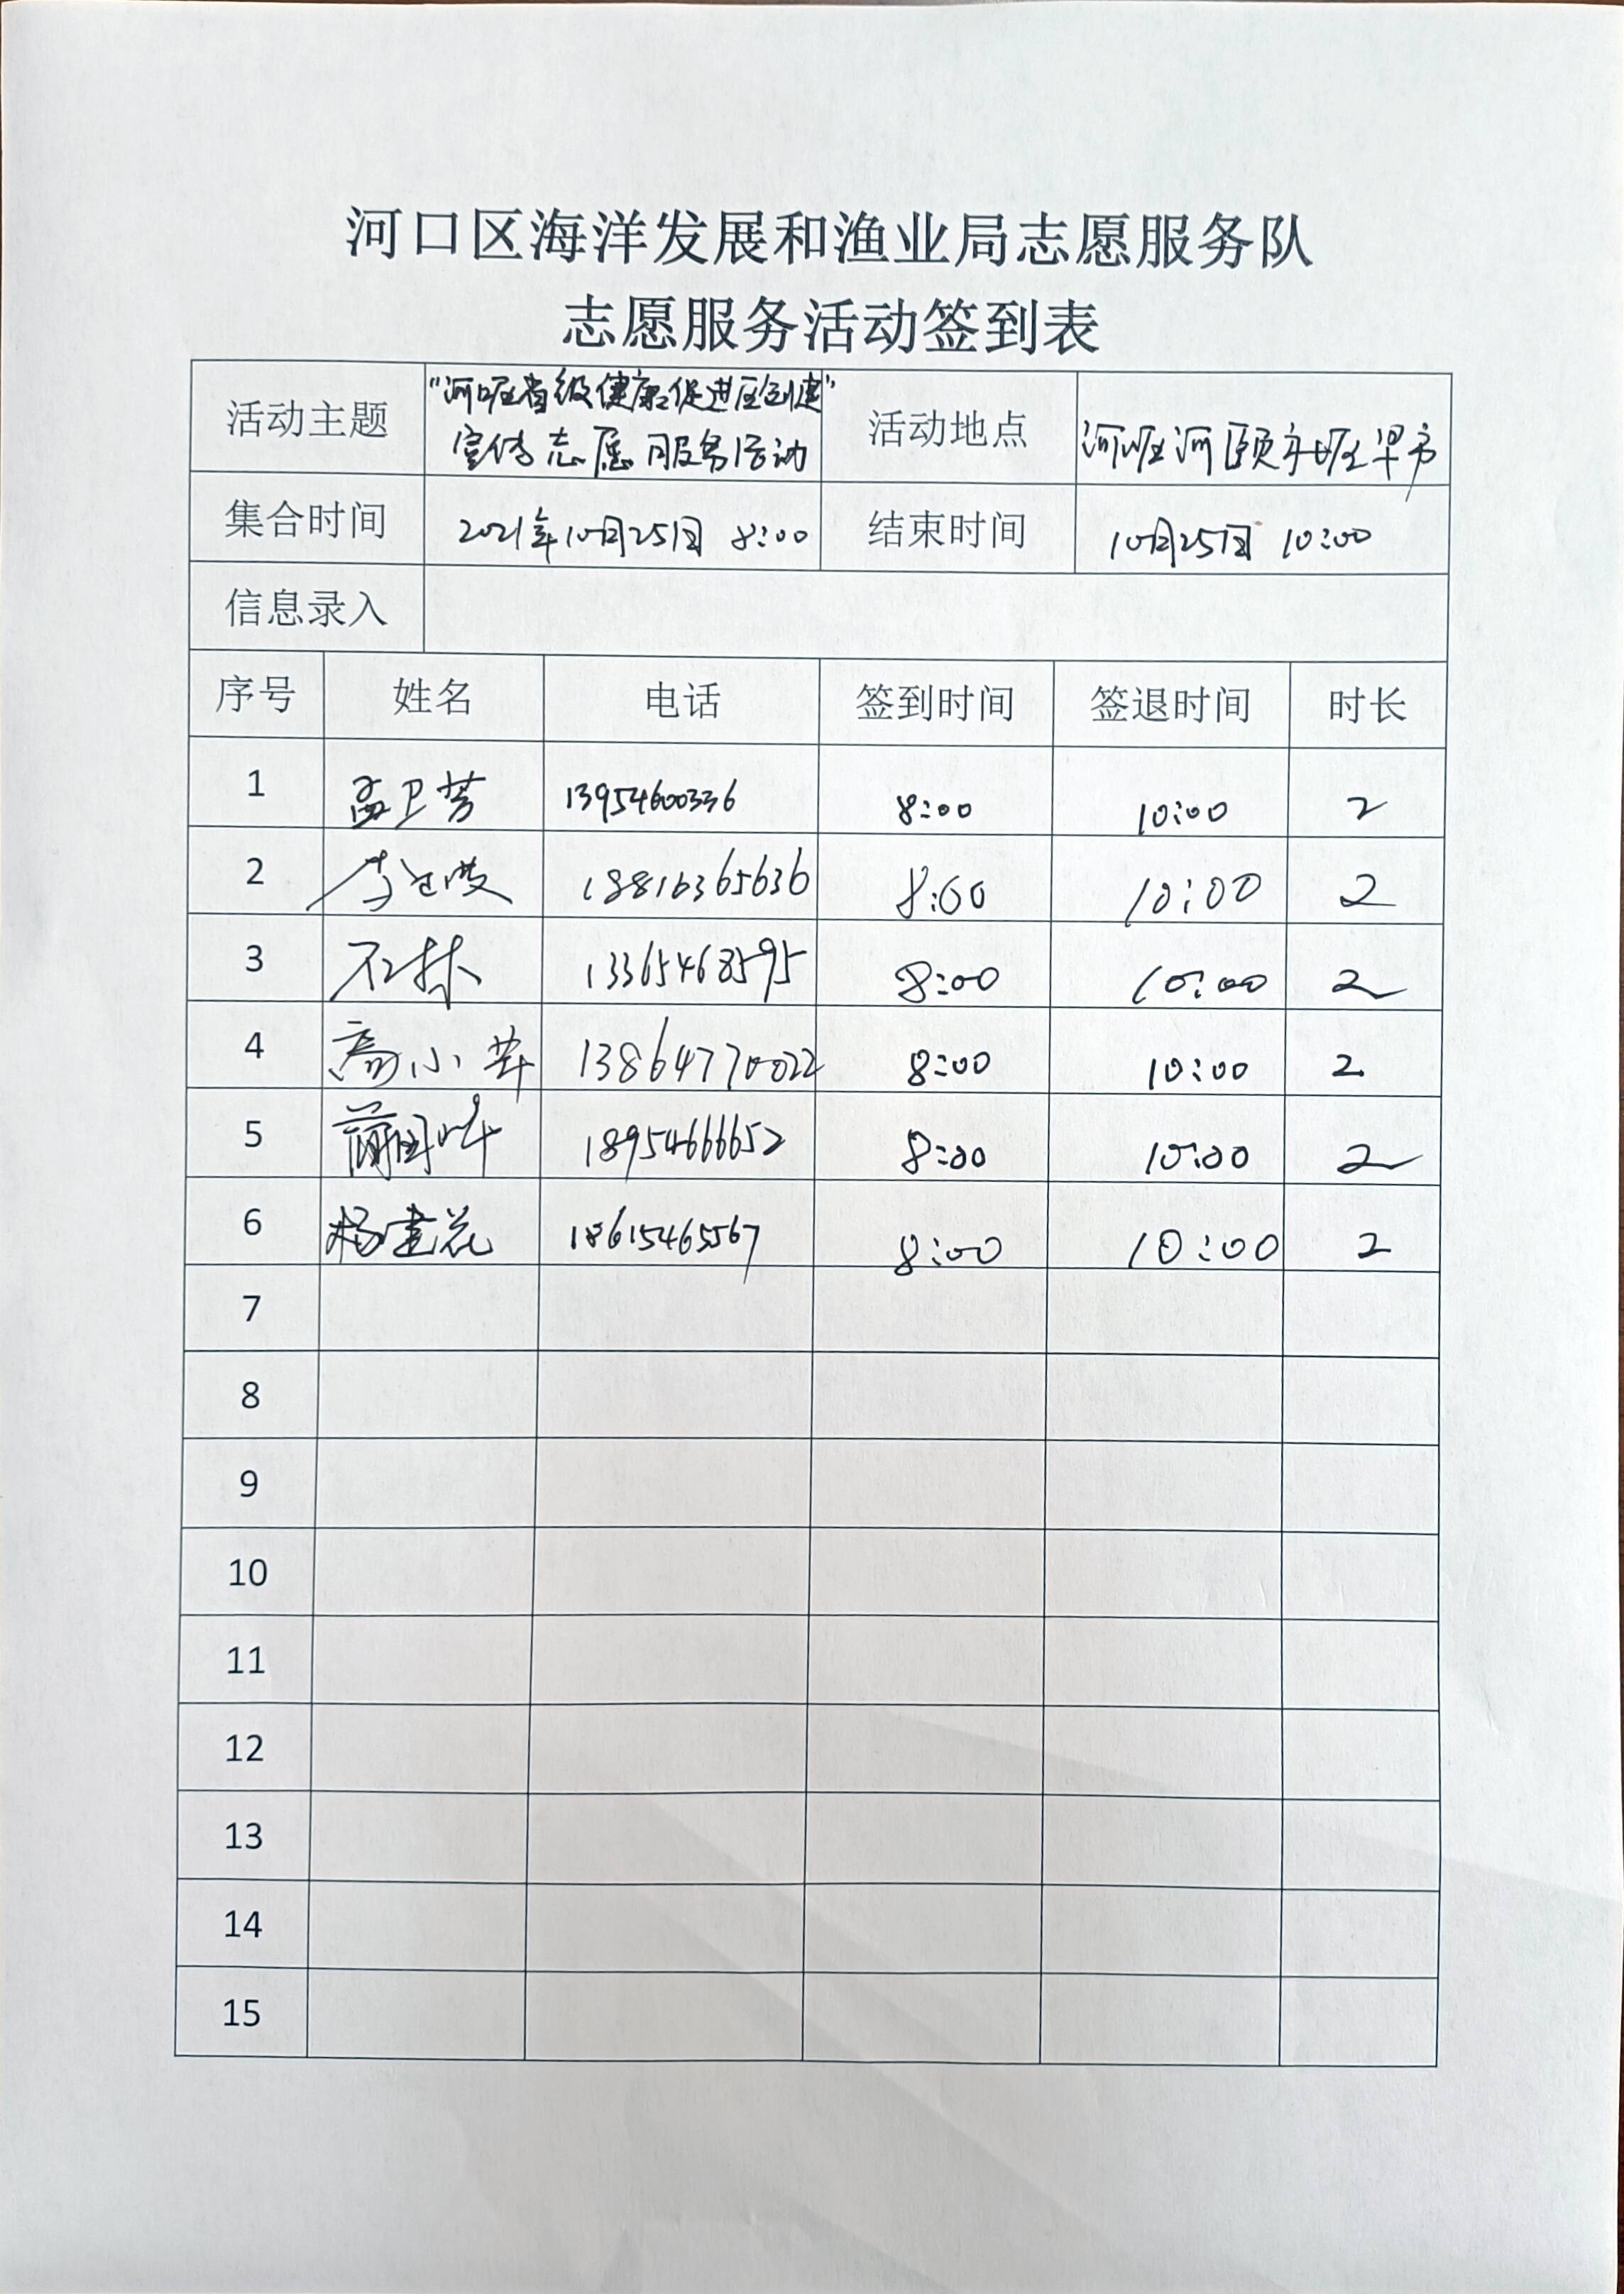 河口区海洋发展和渔业局志愿服务队
志愿服务活动签到表
活动主题 "河口区省级健康促进区创建" 活动地点
宣传志愿服务活动
集合时间 2021年10月25日 8:00 结束时间 10月25日 10:00
信息录入
序号 姓名 电话 签到时间 签退时间 时长
1 孟卫芳 13954600336 8:00 10:00 2
2 18816365636 8:00 10:00 2
3 石林 13365468595 8:00 10:00 2
4 高小苹 13864770022 8:00 10:00 2
5 18954666652 8:00 10:00 2
6 杨建花 18615465567 8:00 10:00 2
7
8
9
10
11
12
13
14
15